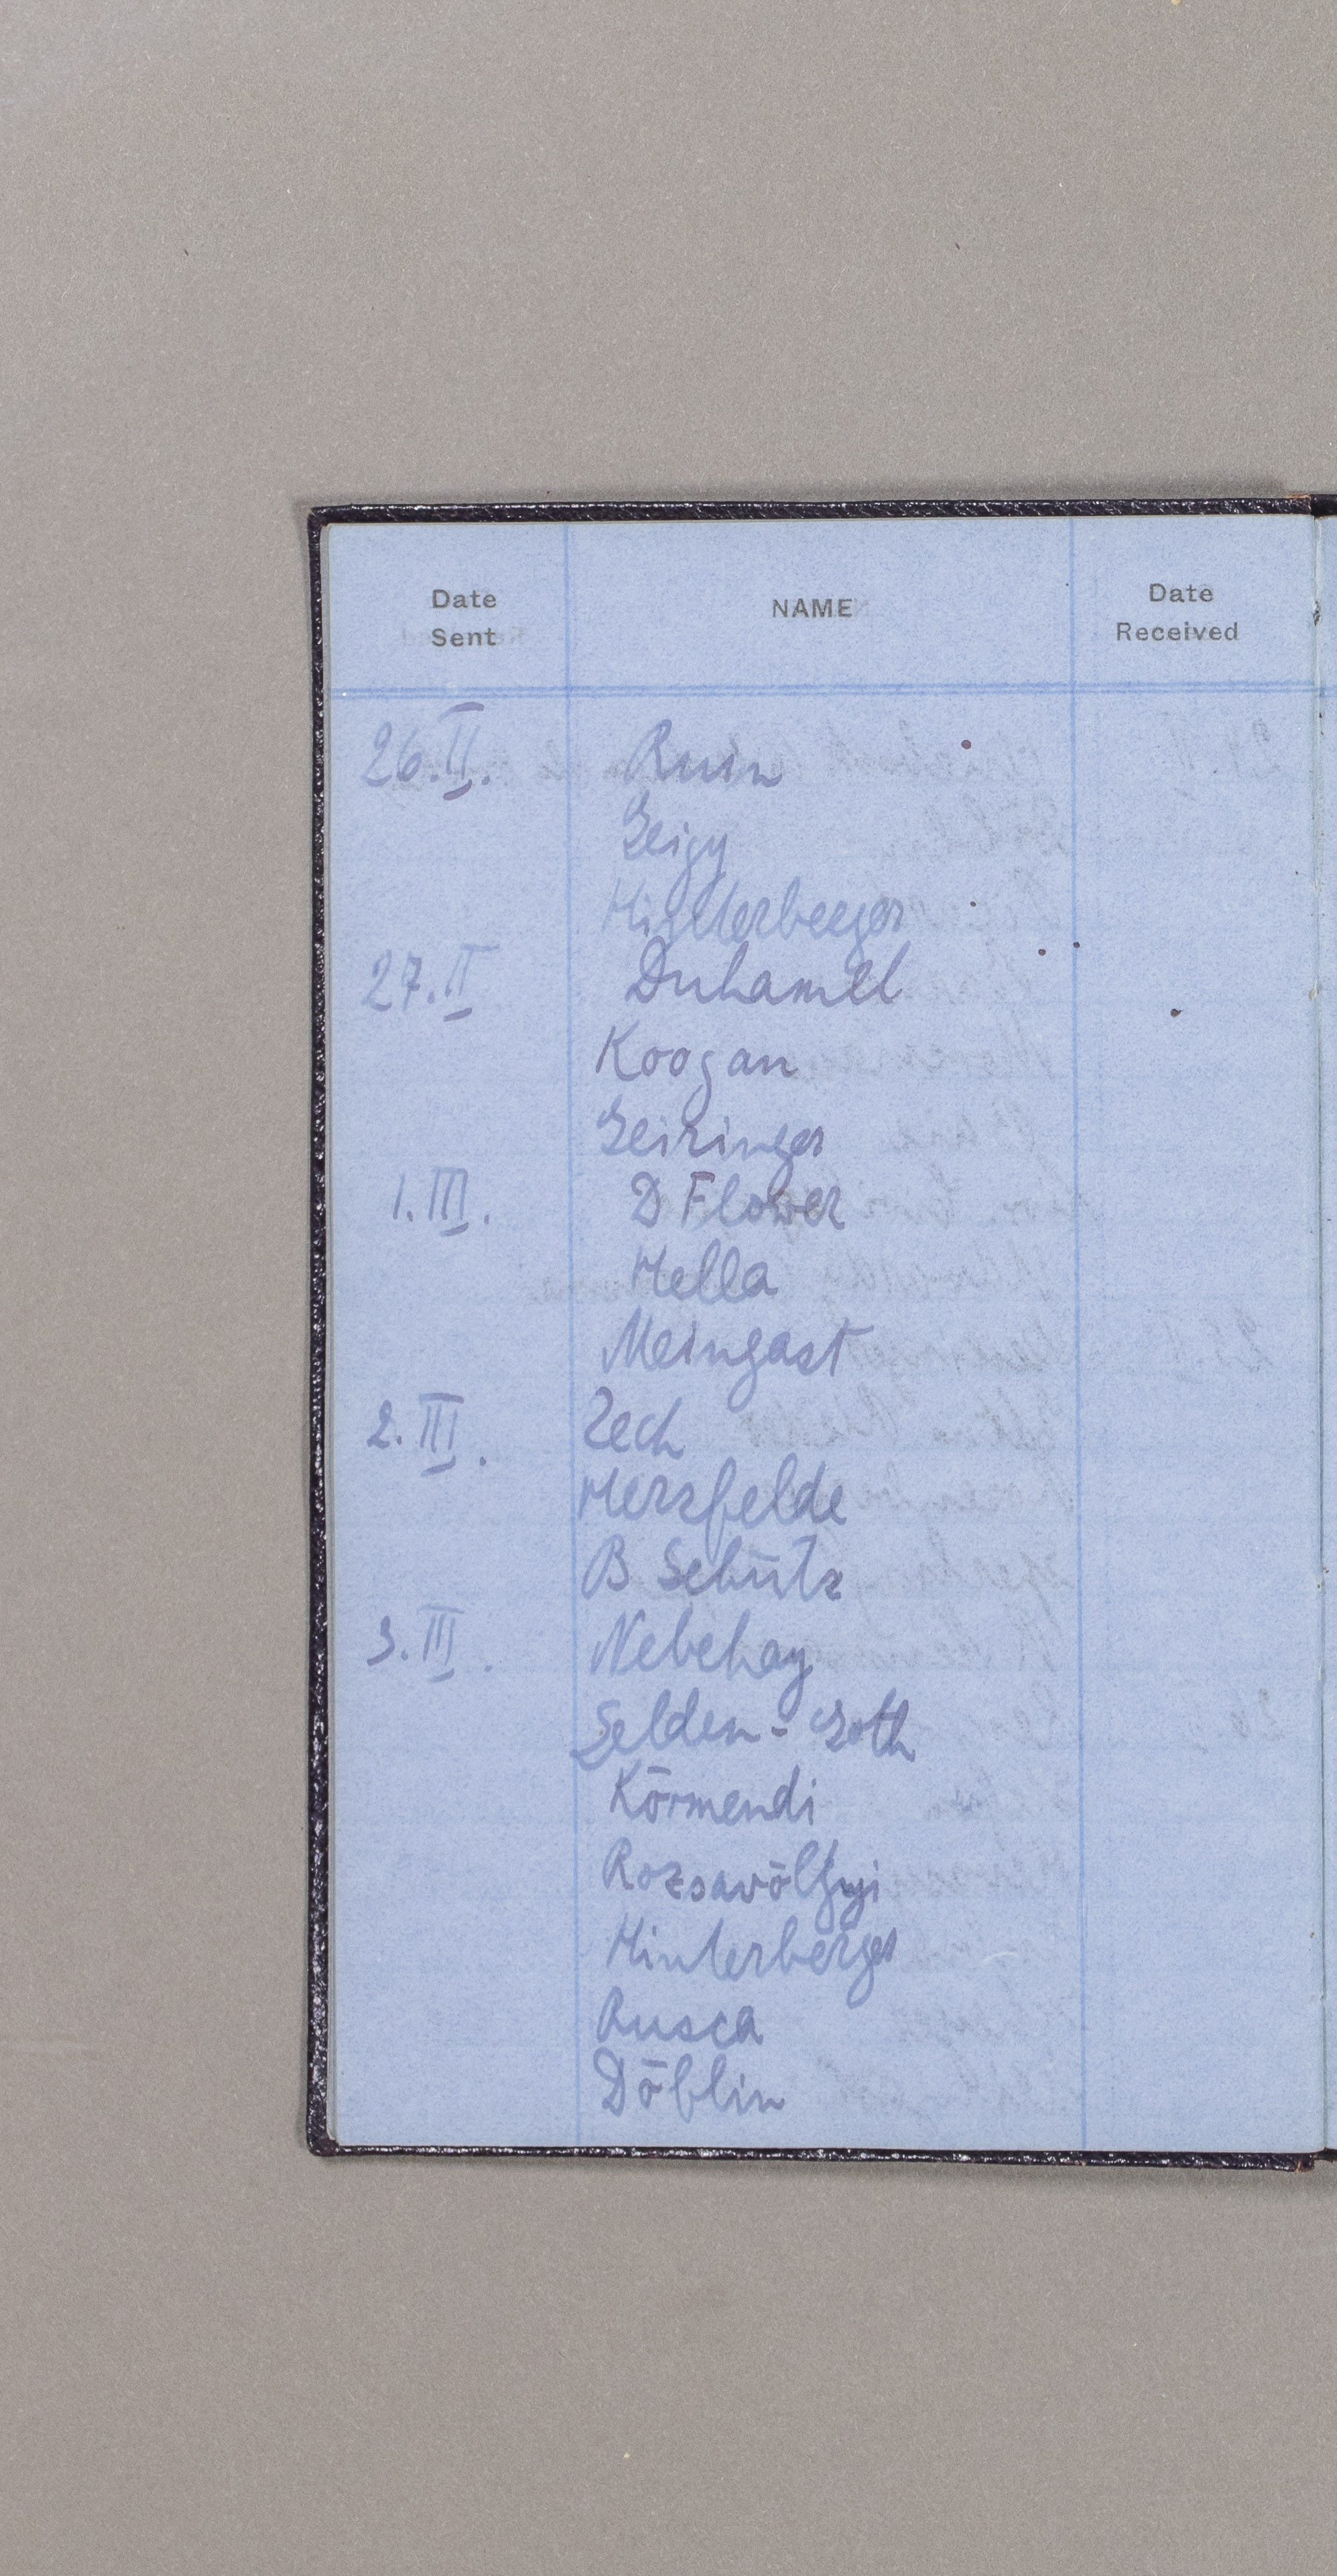 Date Sent NAME Date Received
26.II. Ruin
Geigy
Hinterberger
27.II Duhamel
Koogan
Geiringer
1.III. D Flower
Hella
Meingast
2.III. Zech
Herzfelde
B Schütz
3.III. Nebehay
Selden-Goth
Körmendi
Rozsavölgyi
Hinterberger
Rusca
Döblin